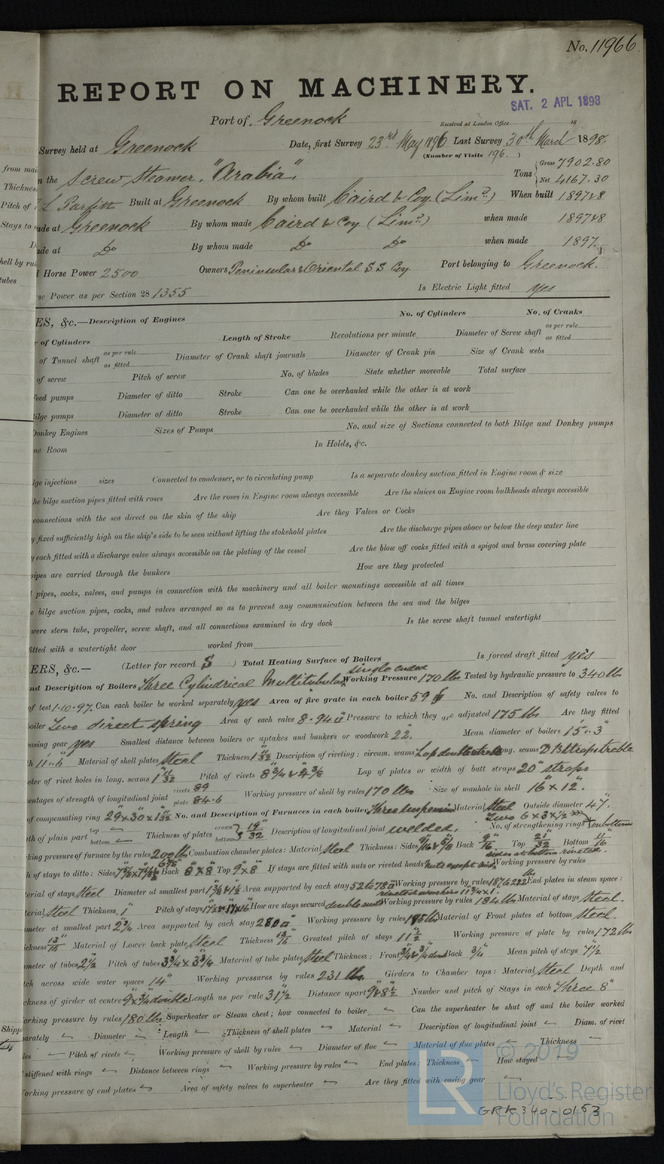 No. 11966
REPORT ON MACHINERY.
SAT. 2 APL 1898
Port of Greenock
Received at London Office
Survey held at Greenock Date, first Survey 23rd May 1896 Last Survey 30th March 1898
(Number of Visits 196.)
n the Screw Steamer, "Arabia" Tons Gross 7902.80 Net 4167.30
Parfitt Built at Greenock By whom built Caird & Coy. (Limd.) When built 1897&8
ade at Greenock By whom made Caird & Coy (Limd.) when made 1897&8
ade at Do By whom made Do Do when made 1897
Horse Power 2500 Owners Peninsular & Oriental S S Coy Port belonging to Greenock.
se Power as per Section 28 1355 Is Electric Light fitted yes
ES, &c.—Description of Engines No. of Cylinders No. of Cranks
r of Cylinders Length of Stroke Revolutions per minute Diameter of Screw shaft as per rule as fitted
of Tunnel shaft as per rule as fitted Diameter of Crank shaft journals Diameter of Crank pin Size of Crank webs
of screw Pitch of screw No. of blades State whether moveable Total surface
eed pumps Diameter of ditto Stroke Can one be overhauled while the other is at work
ilge pumps Diameter of ditto Stroke Can one be overhauled while the other is at work
Donkey Engines Sizes of Pumps No. and size of Suctions connected to both Bilge and Donkey pumps
ne Room In Holds, &c.
lge injections sizes Connected to condenser, or to circulating pump Is a separate donkey suction fitted in Engine room & size
he bilge suction pipes fitted with roses Are the roses in Engine room always accessible Are the sluices on Engine room bulkheads always accessible
connections with the sea direct on the skin of the ship Are they Valves or Cocks
y fixed sufficiently high on the ship's side to be seen without lifting the stokehold plates Are the discharge pipes above or below the deep water line
y each fitted with a discharge valve always accessible on the plating of the vessel Are the blow off cocks fitted with a spigot and brass covering plate
pipes are carried through the bunkers How are they protected
l pipes, cocks, valves, and pumps in connection with the machinery and all boiler mountings accessible at all times
e bilge suction pipes, cocks, and valves arranged so as to prevent any communication between the sea and the bilges
were stern tube, propeller, screw shaft, and all connections examined in dry dock Is the screw shaft tunnel watertight
fitted with a watertight door worked from
ERS, &c.— (Letter for record S) Total Heating Surface of Boilers Is forced draft fitted yes
nd Description of Boilers Three Cylindrical Multitubular single ended Working Pressure 170 lb Tested by hydraulic pressure to 340 lb
of test 1-10-97. Can each boiler be worked separately yes Area of fire grate in each boiler 59 No. and Description of safety valves to
oiler Two direct spring Area of each valve 8.94 Pressure to which they are adjusted 175 lb Are they fitted
asing gear yes Smallest distance between boilers or uptakes and bunkers or woodwork 22" Mean diameter of boilers 15'-3"
h 11'-6" Material of shell plates Steel Thickness 1 Description of riveting: circum. seams Lap double long. seams DB straps treble
eter of rivet holes in long. seams Pitch of rivets Lap of plates or width of butt straps 20" straps
entages of strength of longitudinal joint rivets 89 plate 84.6 Working pressure of shell by rules 170 lbs Size of manhole in shell 16" x 12"
of compensating ring 29 x 30 x No. and Description of Furnaces in each boiler Three Material Steel Outside diameter 47"
th of plain part top bottom Thickness of plates crown 19/32 bottom Description of longitudinal joint welded No. of strengthening rings
king pressure of furnace by the rules 200 lb Combustion chamber plates: Material Steel Thickness: Sides Back Top 21/32 Bottom
h of stays to ditto: Sides Back 8" x 8" Top 9" x 8" If stays are fitted with nuts or riveted heads Working pressure by rules
erial of stays Steel Diameter at smallest part Area supported by each stay Working pressure by rules End plates in steam space:
aterial Steel Thickness 1" Pitch of stays How are stays secured Working pressure by rules 184 lb Material of stays Steel
ameter at smallest part 2¾ Area supported by each stay 280 Working pressure by rules 185 lb Material of Front plates at bottom Steel
ickness 13/16 Material of Lower back plate Steel Thickness 13/16 Greatest pitch of stays 11½ Working pressure of plate by rules 172 lb
ameter of tubes 2½ Pitch of tubes 3¾ x 3¾ Material of tube plates Steel Thickness: Front Back ¾ Mean pitch of stays 7½
itch across wide water spaces 14" Working pressures by rules 231 lbs Girders to Chamber tops: Material Steel Depth and
ckness of girder at centre 9 x ¾ double Length as per rule 31½ Distance apart 9 & 8½ Number and pitch of Stays in each Three 8"
orking pressure by rules 180 lb Superheater or Steam chest; how connected to boiler Can the superheater be shut off and the boiler worked
parately Diameter Length Thickness of shell plates Material Description of longitudinal joint Diam. of rivet
les Pitch of rivets Working pressure of shell by rules Diameter of flue Material of flue plates Thickness
stiffened with rings Distance between rings Working pressure by rules End plates: Thickness How stayed
orking pressure of end plates Area of safety valves to superheater Are they fitted with easing gear
© 2019
LR
Lloyd's Register
Foundation
GRK340-0153